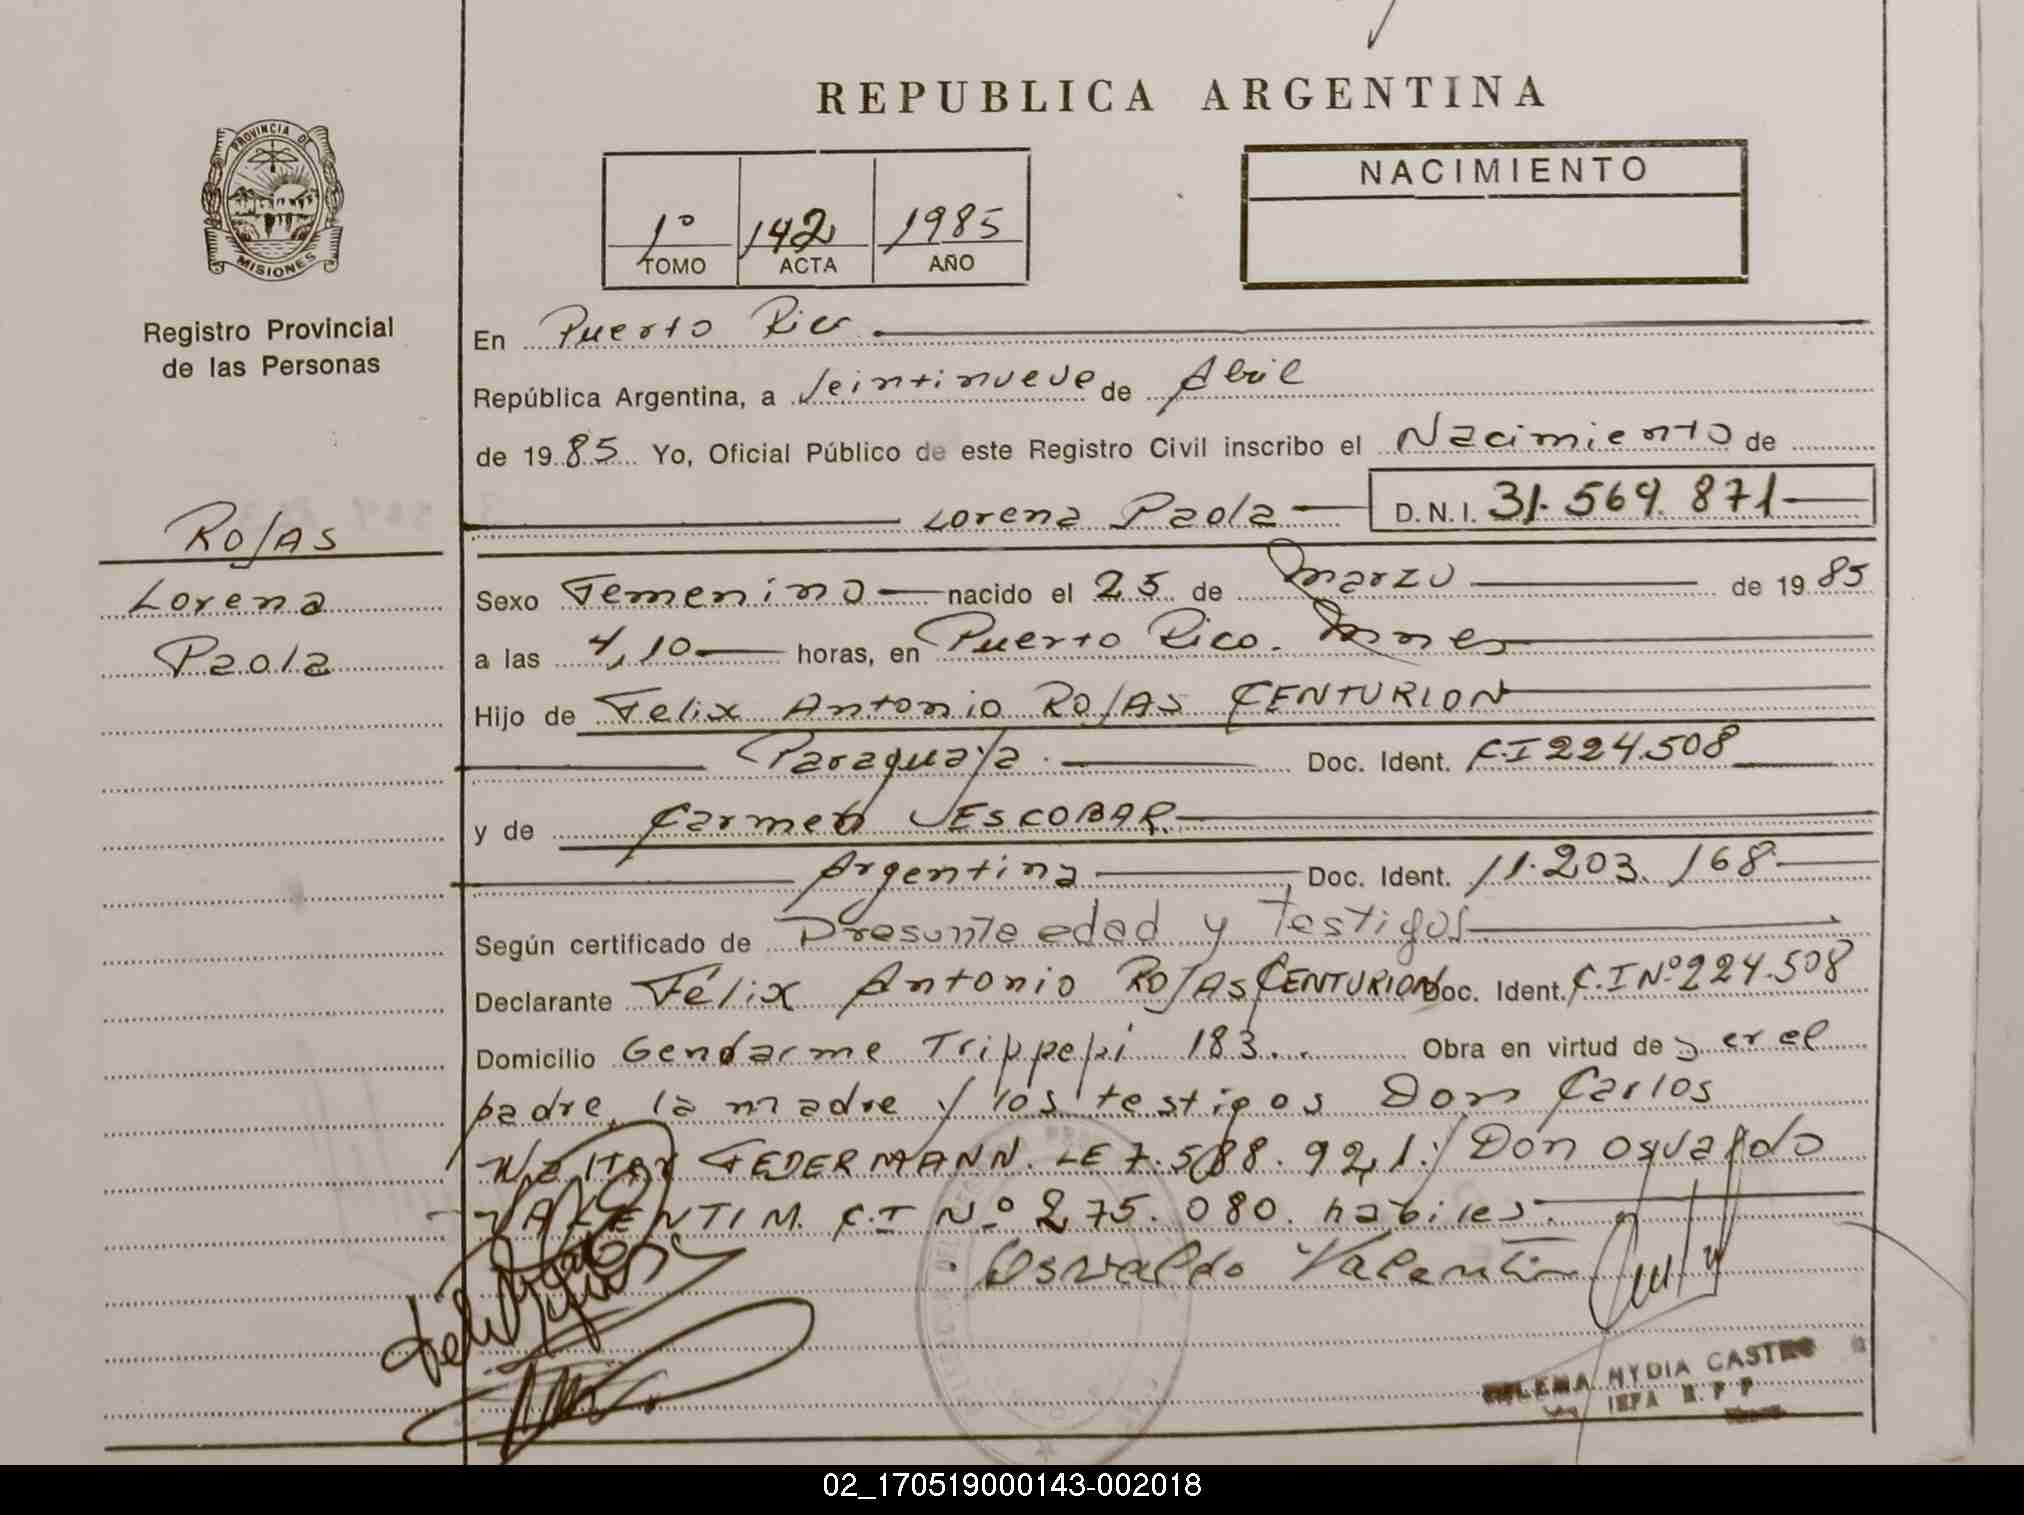 REPUBLICA ARGENTINA
PROVINCIA DE
MISIONES
Registro Provincial
de las Personas
1º 142 1985
TOMO ACTA AÑO
NACIMIENTO
En Puerto Rico
República Argentina, a Veintinueve de Abril
de 19 85 Yo, Oficial Público de este Registro Civil inscribo el Nacimiento de
Lorena Paola D.N.I. 31.569.871
ROJAS
Lorena
Paola
Sexo Femenino nacido el 25 de Marzo de 19 85
a las 4,10 horas, en Puerto Rico. Mnes
Hijo de Felix Antonio ROJAS CENTURION
Paraguaya Doc. Ident. C.I 224.508
y de Carmen ESCOBAR
Argentina Doc. Ident. 11.203.168
Según certificado de Presunta edad y Testigos
Declarante Félix Antonio ROJAS CENTURION Doc. Ident. C.I Nº 224.508
Domicilio Gendarme Trippepi 183.. Obra en virtud de ser el
padre, la madre y los testigos Don Carlos
Walter FEDERMANN. LE 7.588.921.y Don Osvaldo
VALENTIM. C.I Nº 275.080. habiles.
Osvaldo Valentin
NYDIA CASTRO
02_170519000143-002018